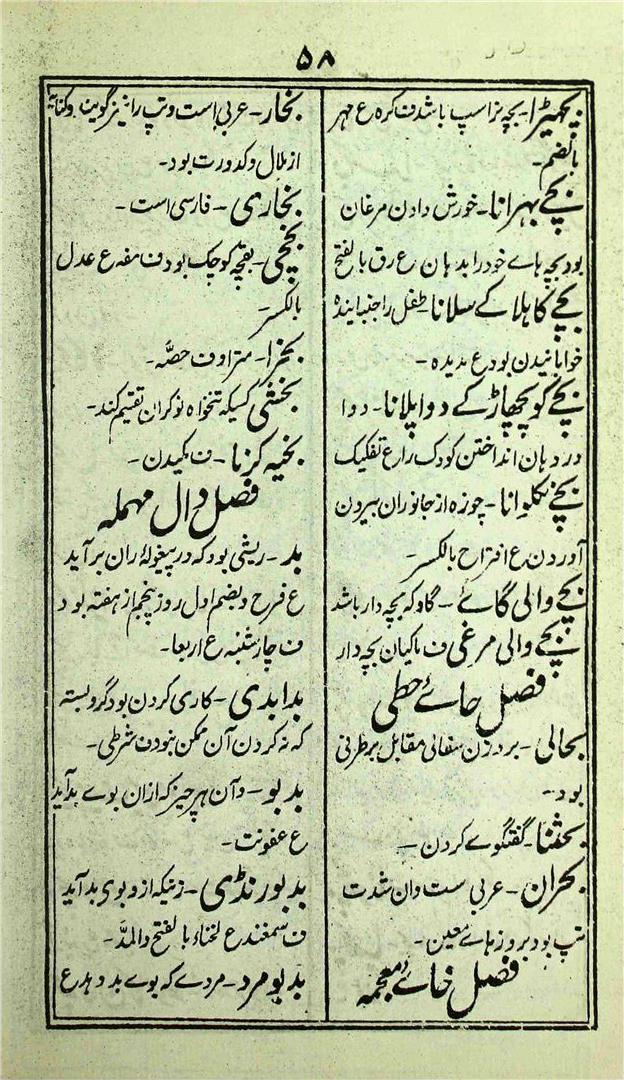 ۵۸
بچھیڑا۔ بچہ نر اسپ باشد ف کرہ ع مہر
بالضم۔
بچے بہرانا۔ خورش دادن مرغان
بود بچہ ہاے خود را بدہان ع رق بالفتح
بچے کا ہلا کے سلانا۔ طفل را جنبانیدہ
خوابانیدن بود ع
بچے کو پچھاڑ کے دوا پلانا۔ دوا
در دہان انداختن کودک را ع تفکیک
بچے نکلوانا۔ چوزہ از جانوران بیرون
آوردن ع افراح بالکسر۔
بچے والی گائے۔ گاو کہ بچہ دار باشد
بچے والی مرغی ف ماکیان بچہ دار
فصل حائے حطی
بحالی۔ بر وزن سفالی مقابل برطرفی
بود۔
بحثنا۔ گفتگوے کردن۔
بحران۔ عربی ست و ان شدت
تپ بود بروزہاے معین۔
فصل خائے معجمہ
بخار۔ عربی است و تپ را نیز گویند و کنایہ
از ملال و کدورت بود۔
بخاری۔ فارسی است۔
بخچی۔ بقچہ کوچک بود ف ع عدل
بالکسر۔
بخرا۔ مترادف حصّہ۔
بخشی کسیکہ تنخواہ نوکران تقسیم کند۔
بخیہ کرنا۔ ف
فصل دال مہملہ
بد۔ ریشی بود کہ در پیغولۂ ران بر آید
ع و بضم اول روز پنجم از ہفتہ بود
ف چار شنبہ ع اربعا۔
بدابدی۔ کاری کردن بود گرو بستہ
کہ نہ کردن آن ممکن نبود ف شرطی۔
بدبو۔ و آن ہر چیز کہ از ان بوے بد آید
ع عفونت۔
بدبو رنڈی۔ زنیکہ از و بوی بد آید
ف سمغند ع لخناء بالفتح والمدَّ۔
بدبو مرد۔ مردے کہ بوے بد دہد ع